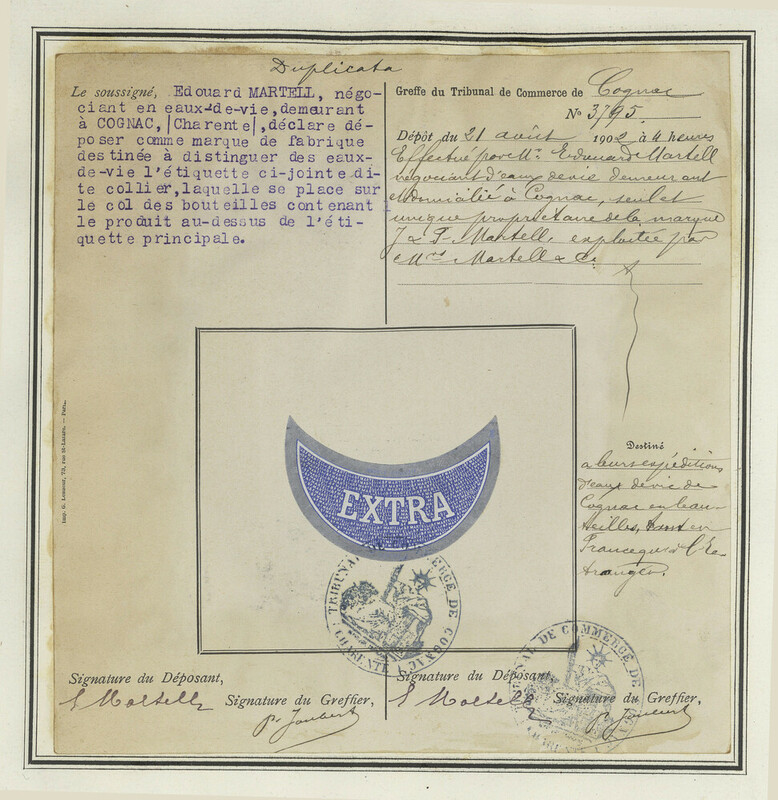 Duplicata
Le soussigné, Edouard MARTELL, négo-
ciant en eaux-de-vie, demeurant
à COGNAC, |Charente|, déclare dé-
poser comme marque de fabrique
destinée à distinguer des eaux-
de-vie l'étiquette ci-jointe di-
te collier, laquelle se place sur
le col des bouteilles contenant
le produit au-dessus de l'éti-
quette principale.
Greffe du Tribunal de Commerce de Cognac
No 3795.
Dépôt du 21 août 1902 à 4 heures
Effectué par Mr. Edouard Martell
négociant d'eaux de vie demeurant
et domicilié à Cognac, seul et
unique propriétaire de la marque
J & F Martell, exploitée par
Mrs Martell & Co.
Imp. G. Lesourd, 73, rue St-Lazare. — Paris.
EXTRA
TRIBUNAL DE COMMERCE DE COGNAC
CHARENTE
Destiné
a leurs expéditions
d'eaux de vie de
Cognac en bou-
teilles, tant en
France qu'à l'É-
tranger.
Signature du Déposant,
E Martell
Signature du Greffier,
Pr Joubert
Signature du Déposant,
E Martell
Signature du Greffier,
Pr Joubert
TRIBUNAL DE COMMERCE DE COGNAC